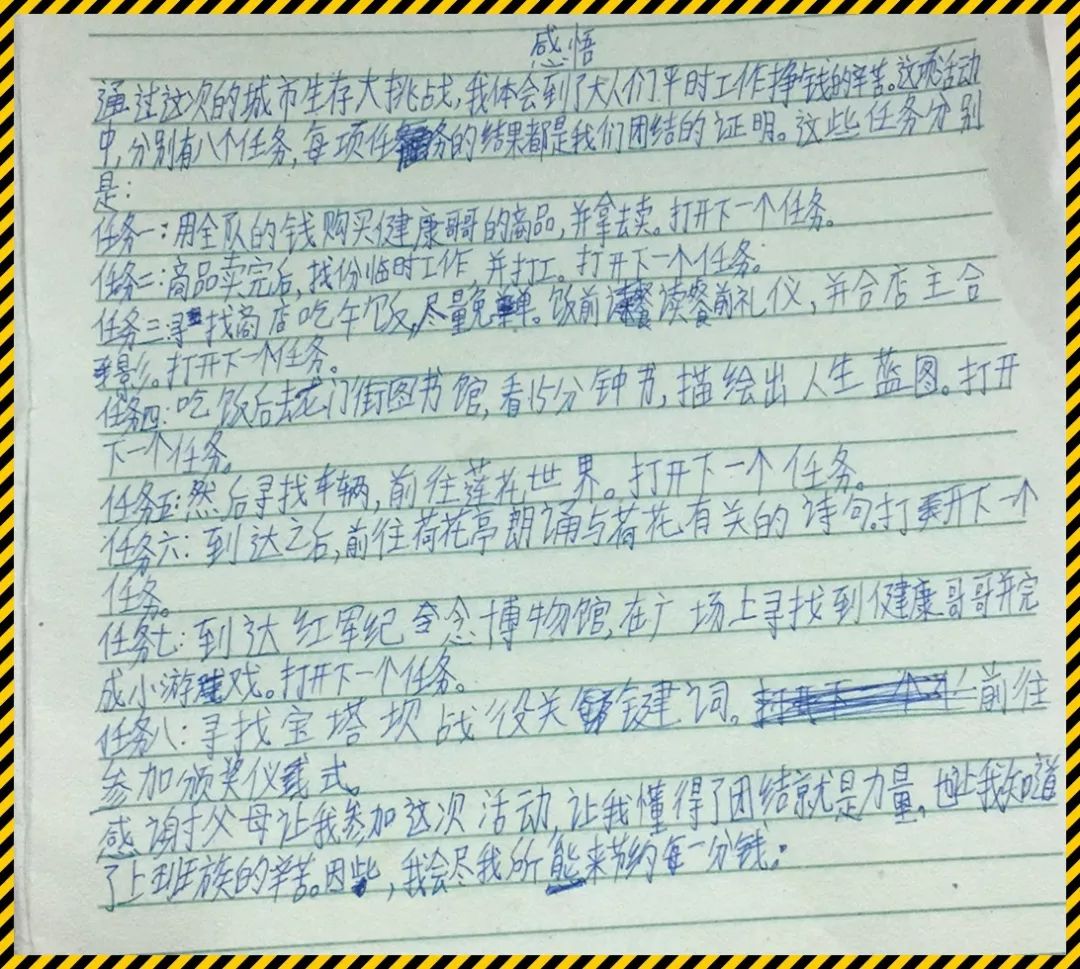 感悟
通过这次的城市生存大挑战,我体会到了大人们平时工作挣钱的辛苦。这项活动
中,分别有八个任务,每项任务的结果都是我们团结的证明。这些任务分别
是:
任务一:用全队的钱购买健康哥的商品,并拿去卖。打开下一个任务。
任务二:商品卖完后,找份临时工作,并打工。打开下一个任务。
任务三:寻找商店吃午饭,尽量免单。饭前读餐前礼仪,并合店主合
影。打开下一个任务。
任务四:吃饭后去龙门街图书馆,看15分钟书,描绘出人生蓝图。打开
下一个任务。
任务五:然后寻找车辆,前往莲花世界。打开下一个任务。
任务六:到达之后,前往荷花亭朗诵与荷花有关的诗句。打开下一个
任务。
任务七:到达红军纪念博物馆,在广场上寻找到健康哥哥并完
成小游戏。打开下一个任务。
任务八:寻找宝塔坝战役关键词。前往
参加颁奖仪式。
感谢父母让我参加这次活动,让我懂得了团结就是力量。也让我知道
了上班族的辛苦。因此,我会尽我所能来节约每一分钱。